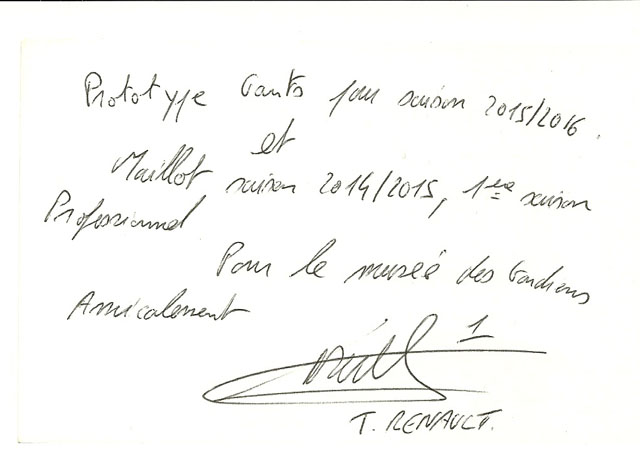 Prototype Gants pour saison 2015/2016.
et
Maillot saison 2014/2015, 1ère saison
Professionnel
Pour le musée des Gardiens
Amicalement
1
T. RENAULT.